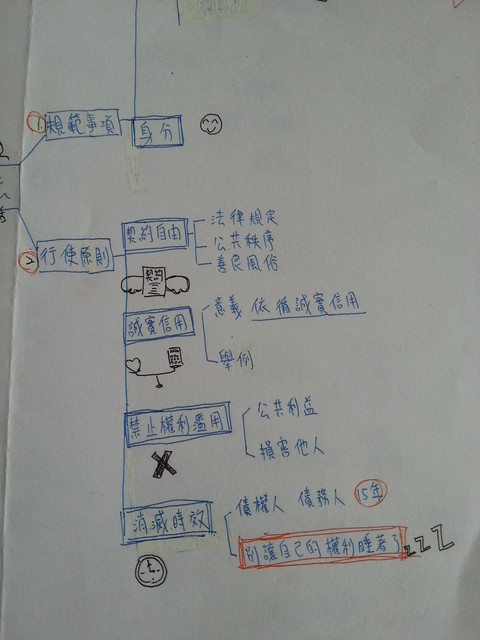 ① 規範事項
身分
② 行使原則
契約自由
法律規定
公共秩序
善良風俗
契約
誠實信用
意義 依循誠實信用
舉例
禁止權利濫用
公共利益
損害他人
消滅時效
債權人 債務人 15年
別讓自己的權利睡著了
zzZ